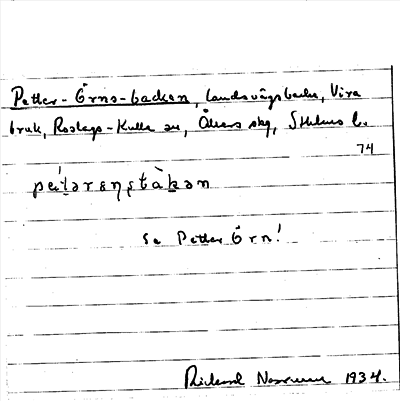 Petter-Örns-backen, landsvägsbacke, Vira
bruk, Roslags-Kulla sn, Åkers skg, Sthlms l.
74
Se Petter Örn!
Rickard 1934.